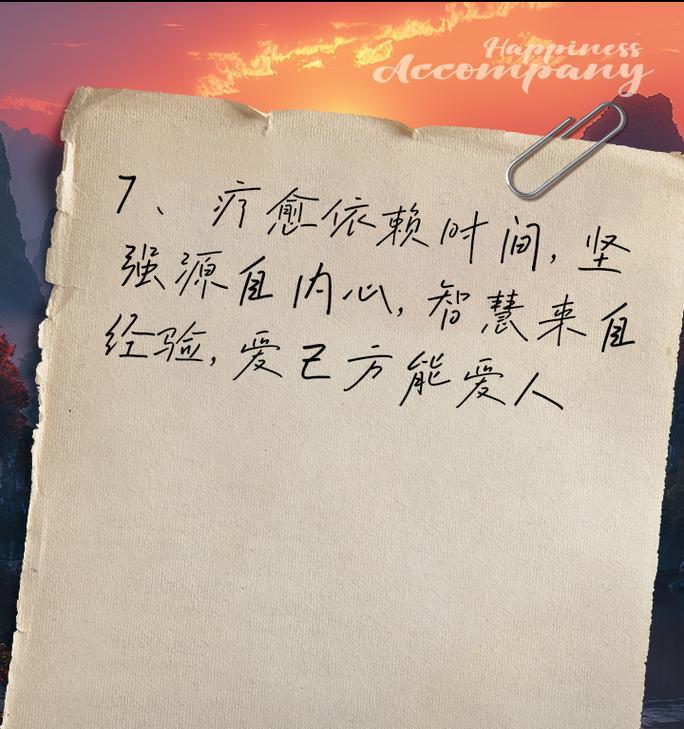 Happiness
Accompany
7、疗愈依赖时间,坚
强源自内心,智慧来自
经验,爱己方能爱人